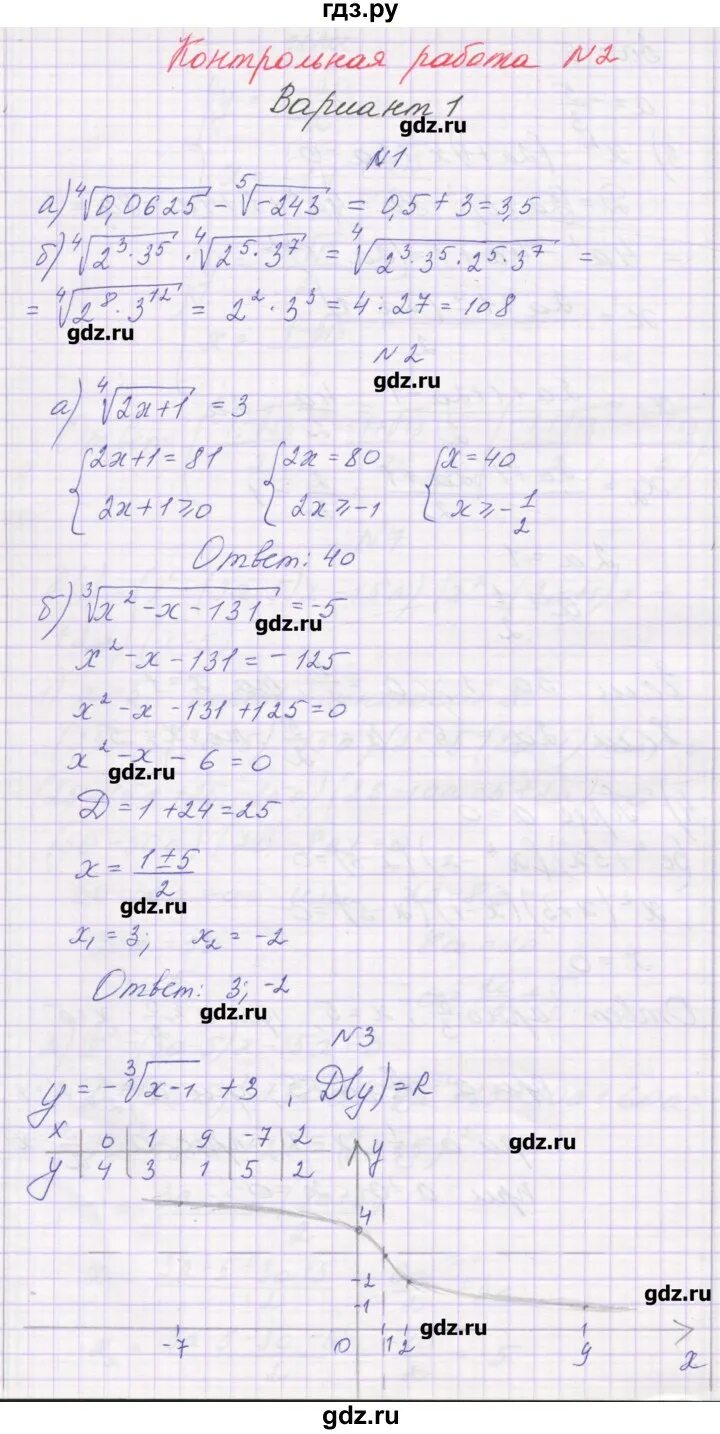 гдз.ру
Контрольная работа №2
Вариант 1
gdz.ru
№1
а) ⁴√0,0625 - ⁵√-243 = 0,5 + 3 = 3,5
б) ⁴√2³·3⁵ · ⁴√2⁵·3⁷ = ⁴√2³·3⁵·2⁵·3⁷ =
= ⁴√2⁸·3¹² = 2²·3³ = 4·27 = 108
gdz.ru
№2
gdz.ru
а) ⁴√2x+1 = 3
{2x+1=81 {2x=80 {x=40
2x+1⩾0 2x⩾-1 x⩾-1/2
Ответ: 40
б) ³√x²-x-131 = -5
gdz.ru
x²-x-131=-125
x²-x-131+125=0
x²-x-6=0
gdz.ru
D=1+24=25
x = 1±5/2
gdz.ru
x₁=3; x₂=-2
Ответ: 3; -2
gdz.ru
№3
y = -³√x-1 +3, D(y)=R
x 0 1 9 -7 2
y 4 3 1 5 2
gdz.ru
y
4
-2
-1
gdz.ru
gdz.ru
-7 0 1 2 9 x
gdz.ru